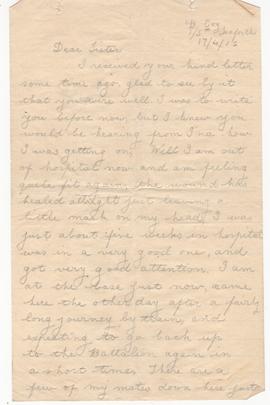 Coy
1/5th Seaforth
17/4/15
Dear Sister
I received your kind letter
some time ago, glad to see by it
that you were well. I was to write
you before now but I knew you
would be hearing from how
I was getting on. Well I am out
of hospital now and am feeling
quite fit again, the wound has
healed alright just leaving a
little mark on my head. I was
just about five weeks in hospital
was in a very good one, and
got very good attention. I am
at the base just now, came
here the other day after a fairly
long journey by train, and
expecting to go back up
to the Battalion again in
a short time. There are a
few of my mates down here just